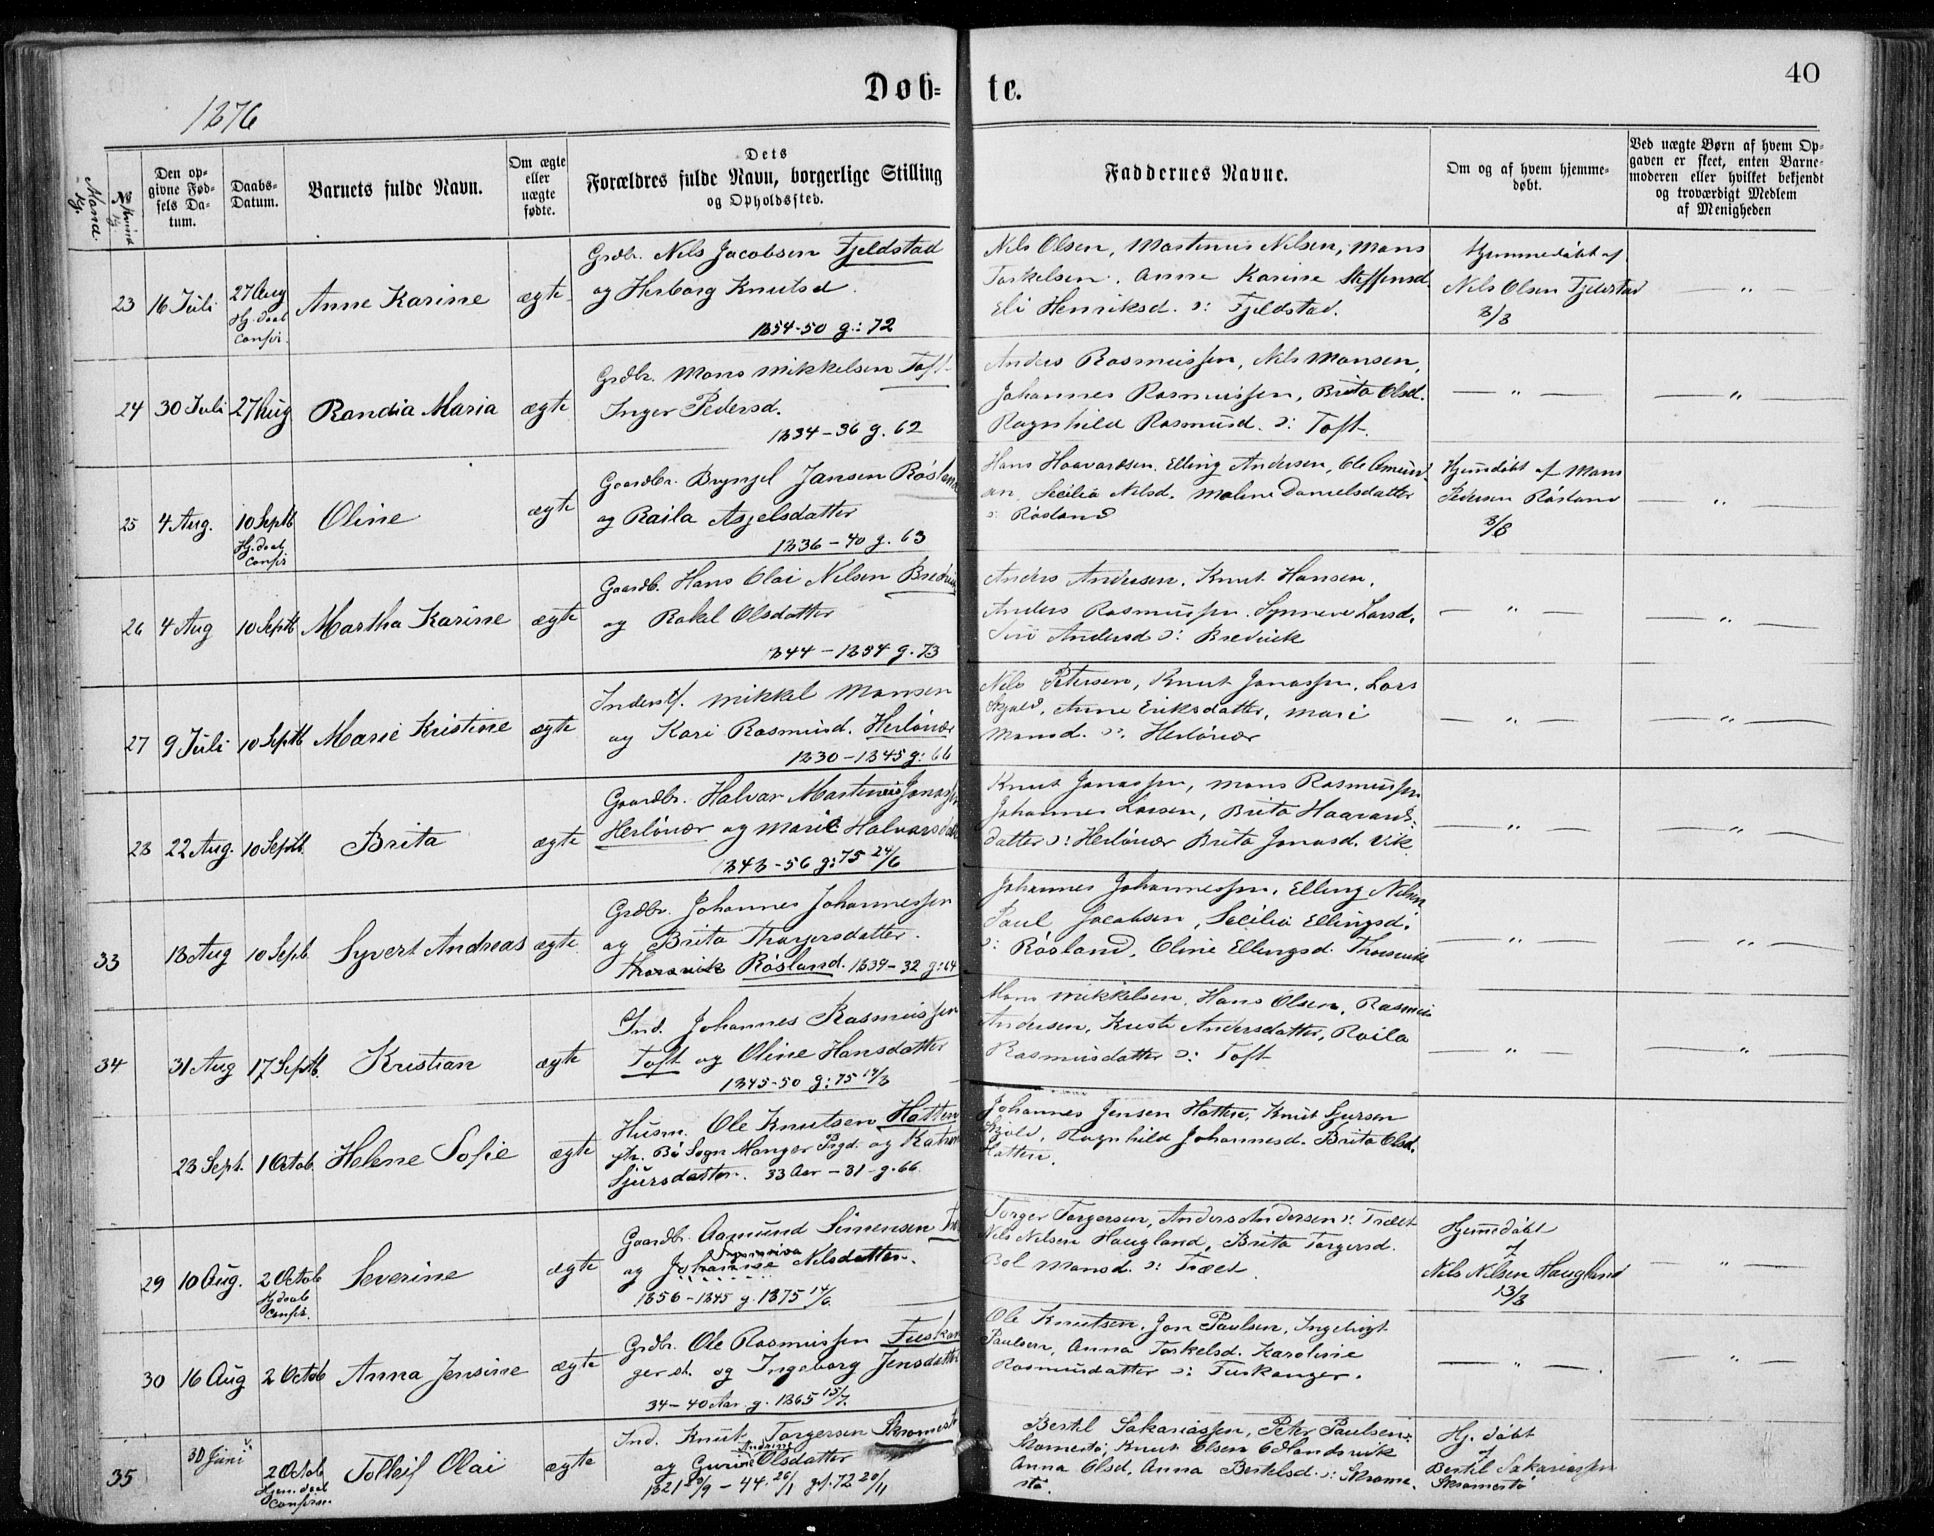 Døb-
te.
40
1876
Mand.
Kj.
№
Kvind
Kj.
Den op-
givne Fød-
sels Da-
tum.
Daabs-
Datum.
Barnets fulde Navn.
Om ægte
eller
uægte
fødte.
Dets
Forældres fulde Navn, borgerlige Stilling
og Opholdssted.
Faddernes Navne.
Om og af hvem hjemme-
døbt.
Ved uægte Børn af hvem Op-
gaven er skeet, enten Barne-
moderen eller hvilket bekjendt
og troværdigt Medlem
af Menigheden
23
16 Juli
27 Aug
Hj. daab
Confir
Anne Karine
ægte
Grdbr. Nils Jacobsen Fjeldstad
og Herborg Knutsd.
1854-50 g: 72
Nils Olsen, Martinus Nilsen, Mans
Torkelsen, Anne Karine Steffensd.
Eli Henriksd. ɔ: Fjeldstad.
Hjemmedøbt af
Nils Olsen Fjeldstad
8/8
— „ —
24
30 Juli
27 Aug
Randia Maria
ægte
Grdbr. Mons Mikkelsen Toft
Inger Pedersd.
1834-36 g. 62
Anders Rasmussen, Nils Monsen,
Johannes Rasmussen, Brita Olsd.
Ragnhild Rasmusd. ɔ: Toft.
— „ —
— „ —
25
4 Aug.
10 Septb
Hj. daab
Confir
Oline
ægte
Gaardbr. Bryngel Jansen Røsland
og Raila Asgelsdatter
1836-40 g. 63
Hans Haavardsen, Elling Andersen, Ole Amund-
sen, Secilia Nilsd. Malene Danielsdatter
ɔ: Røsland
Hjemdøbt af Mans
Pedersen Røsland
8/8
— „ —
26
4 Aug
10 Septb
Martha Karine
ægte
Gaardb. Hans Olai Nilsen Bredvik
og Rakel Olsdatter
1844-1854 g. 73
Anders Andersen, Knut Hansen,
Anders Rasmussen. Synneve Larsd.
Siri Andersd ɔ: Bredvik
— „ —
— „ —
27
9 Juli
10 Septb
Marie Kristine
ægte
Inderst. Mikkel Monsen
og Kari Rasmusd. Herløvær
1830-1845 g: 66
Nils Petersen, Knut Jonassen, Lars
Skjold, Anne Eriksdatter, Mari
Monsd. ɔ: Herløvær
— „ —
— „ —
28
22 Aug.
10 Septb.
Brita
ægte
Gaardbr. Halvar Martinus Jonassen
Herløvær og Marie Halvarsdatter
1848-56 g: 75 24/6
Knut Jonassen, Mons Rasmussen
Johannes Larsen, Brita Haavards-
datter ɔ: Herløvær Brita Jonasd. Vik
— „ —
— „ —
33
13 Aug
10 Septb.
Syvert Andreas
ægte
Grdbr. Johannes Johannessen
og Brita Thorgersdatter
Thorsvik Røsland. 1839-32 g: 64
Johannes Johannessen, Elling Nilsen
Paul Jacobsen, Secilia Ellingsd.
ɔ: Røsland, Oline Ellingsd. Thorsvik
— „ —
— „ —
34
31 Aug
17 Septb.
Kristian
ægte
Ind. Johannes Rasmussen
Toft og Oline Hansdatter
1845-50 g: 75 14/3
Mons Mikkelsen, Hans Olsen, Rasmus
Andersen, Kristi Andersdatter, Raila
Rasmusdatter ɔ: Toft
— „ —
— „ —
23 Sept.
1 Octob.
Helene Sofie
ægte
Husm. Ole Knutsen Hatten
ytr. Bø Sogn Manger Prgd. og Katrine
Sjursdatter. 33 Aar - 31 - g. 66
Johannes Jensen Hatten, Knut Sjursen
Skjold, Ragnhild Johannesd. Brita Olsd.
Hatten.
29
10 Aug.
2 Octob
Hj. daab
Confir.
Severine
ægte
Gaardbr. Aamund Simensen
og Johanne Nilsdatter.
1856-1845 g. 1875 14/6
Torger Torgersen, Anders Andersen ɔ: Træet
Nils Nilsen Haugland, Brita Torgersd.
Bol Monsd. ɔ: Træet
Hjemdøbt
af
Nils Nilsen Haugland
13/8
— „ —
30
16 Aug
2 Octob
Anna Jensine
ægte
Grdbr. Ole Rasmussen Fuskan
ger st. og Ingeborg Jensdatter
34-40 Aar g. 1865 15/7.
Ole Knutsen, Jon Paulsen, Ingebrigt
Paulsen, Anna Torkelsd. Karoline
Rasmusdatter ɔ: Fuskanger.
— „ —
— „ —
35
30 Juni
2 Octob
Hjem. daab
Confir.
Tolleif Olai
ægte
Ind. Knut Torgersen Skromestø
og Gurine Olsdatter
1821 29/9 - 44. 26/1 gf. 72 20/11
Bertil Sakariassen, Peter Paulsen ɔ:
Skromestø, Knut Olsen Odlandsvik
Anna Olsd. Anna Bertelsd. ɔ: Skrome-
stø.
Hj. døbt
af
Bertil Sakariassen
Skromestø